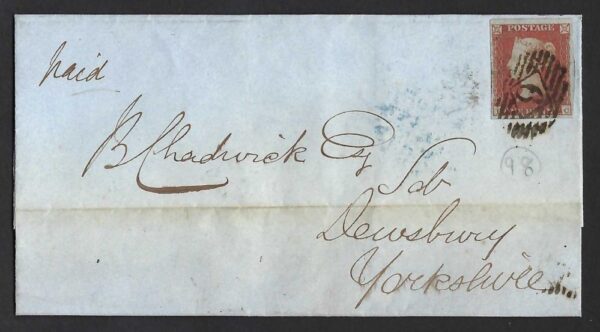 POSTAGE
paid
B Chadwick Esq
98
Dewsbury
Yorkshire